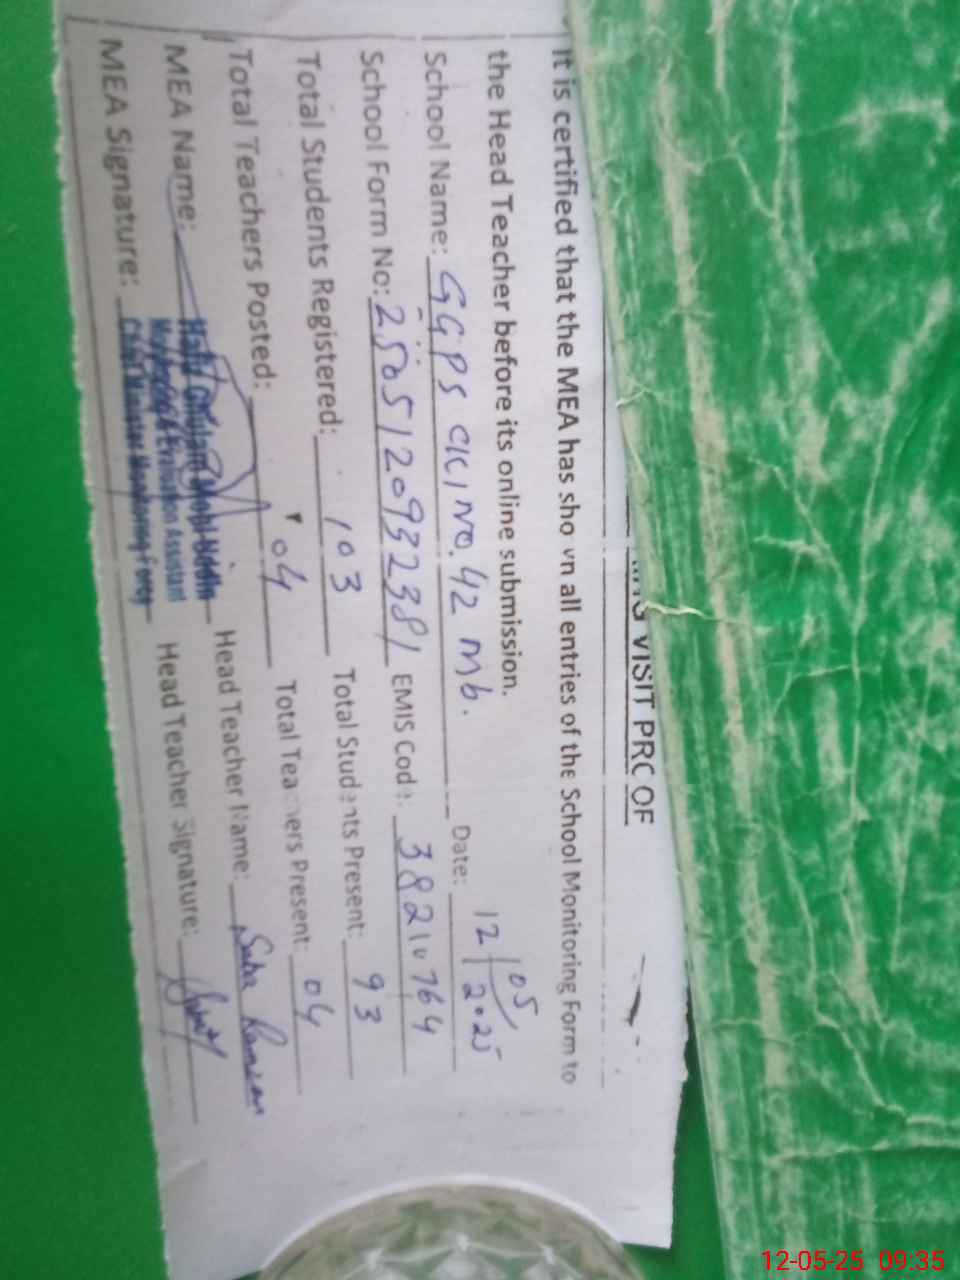 VISIT PRC OF
It is certified that the MEA has shown all entries of the School Monitoring Form to
the Head Teacher before its online submission.
School Name: GGPS CK, NO. 42 mb. Date: 12/05/2025
School Form No: 2505120932381 EMIS Code: 38210764
Total Students Registered: 103 Total Students Present: 93
Total Teachers Posted: 04 Total Teachers Present: 04
MEA Name: Head Teacher Name:
MEA Signature: Head Teacher Signature:
Monitoring & Evaluation Assistant
Chief Minister Monitoring Force
12-05-25 09:35